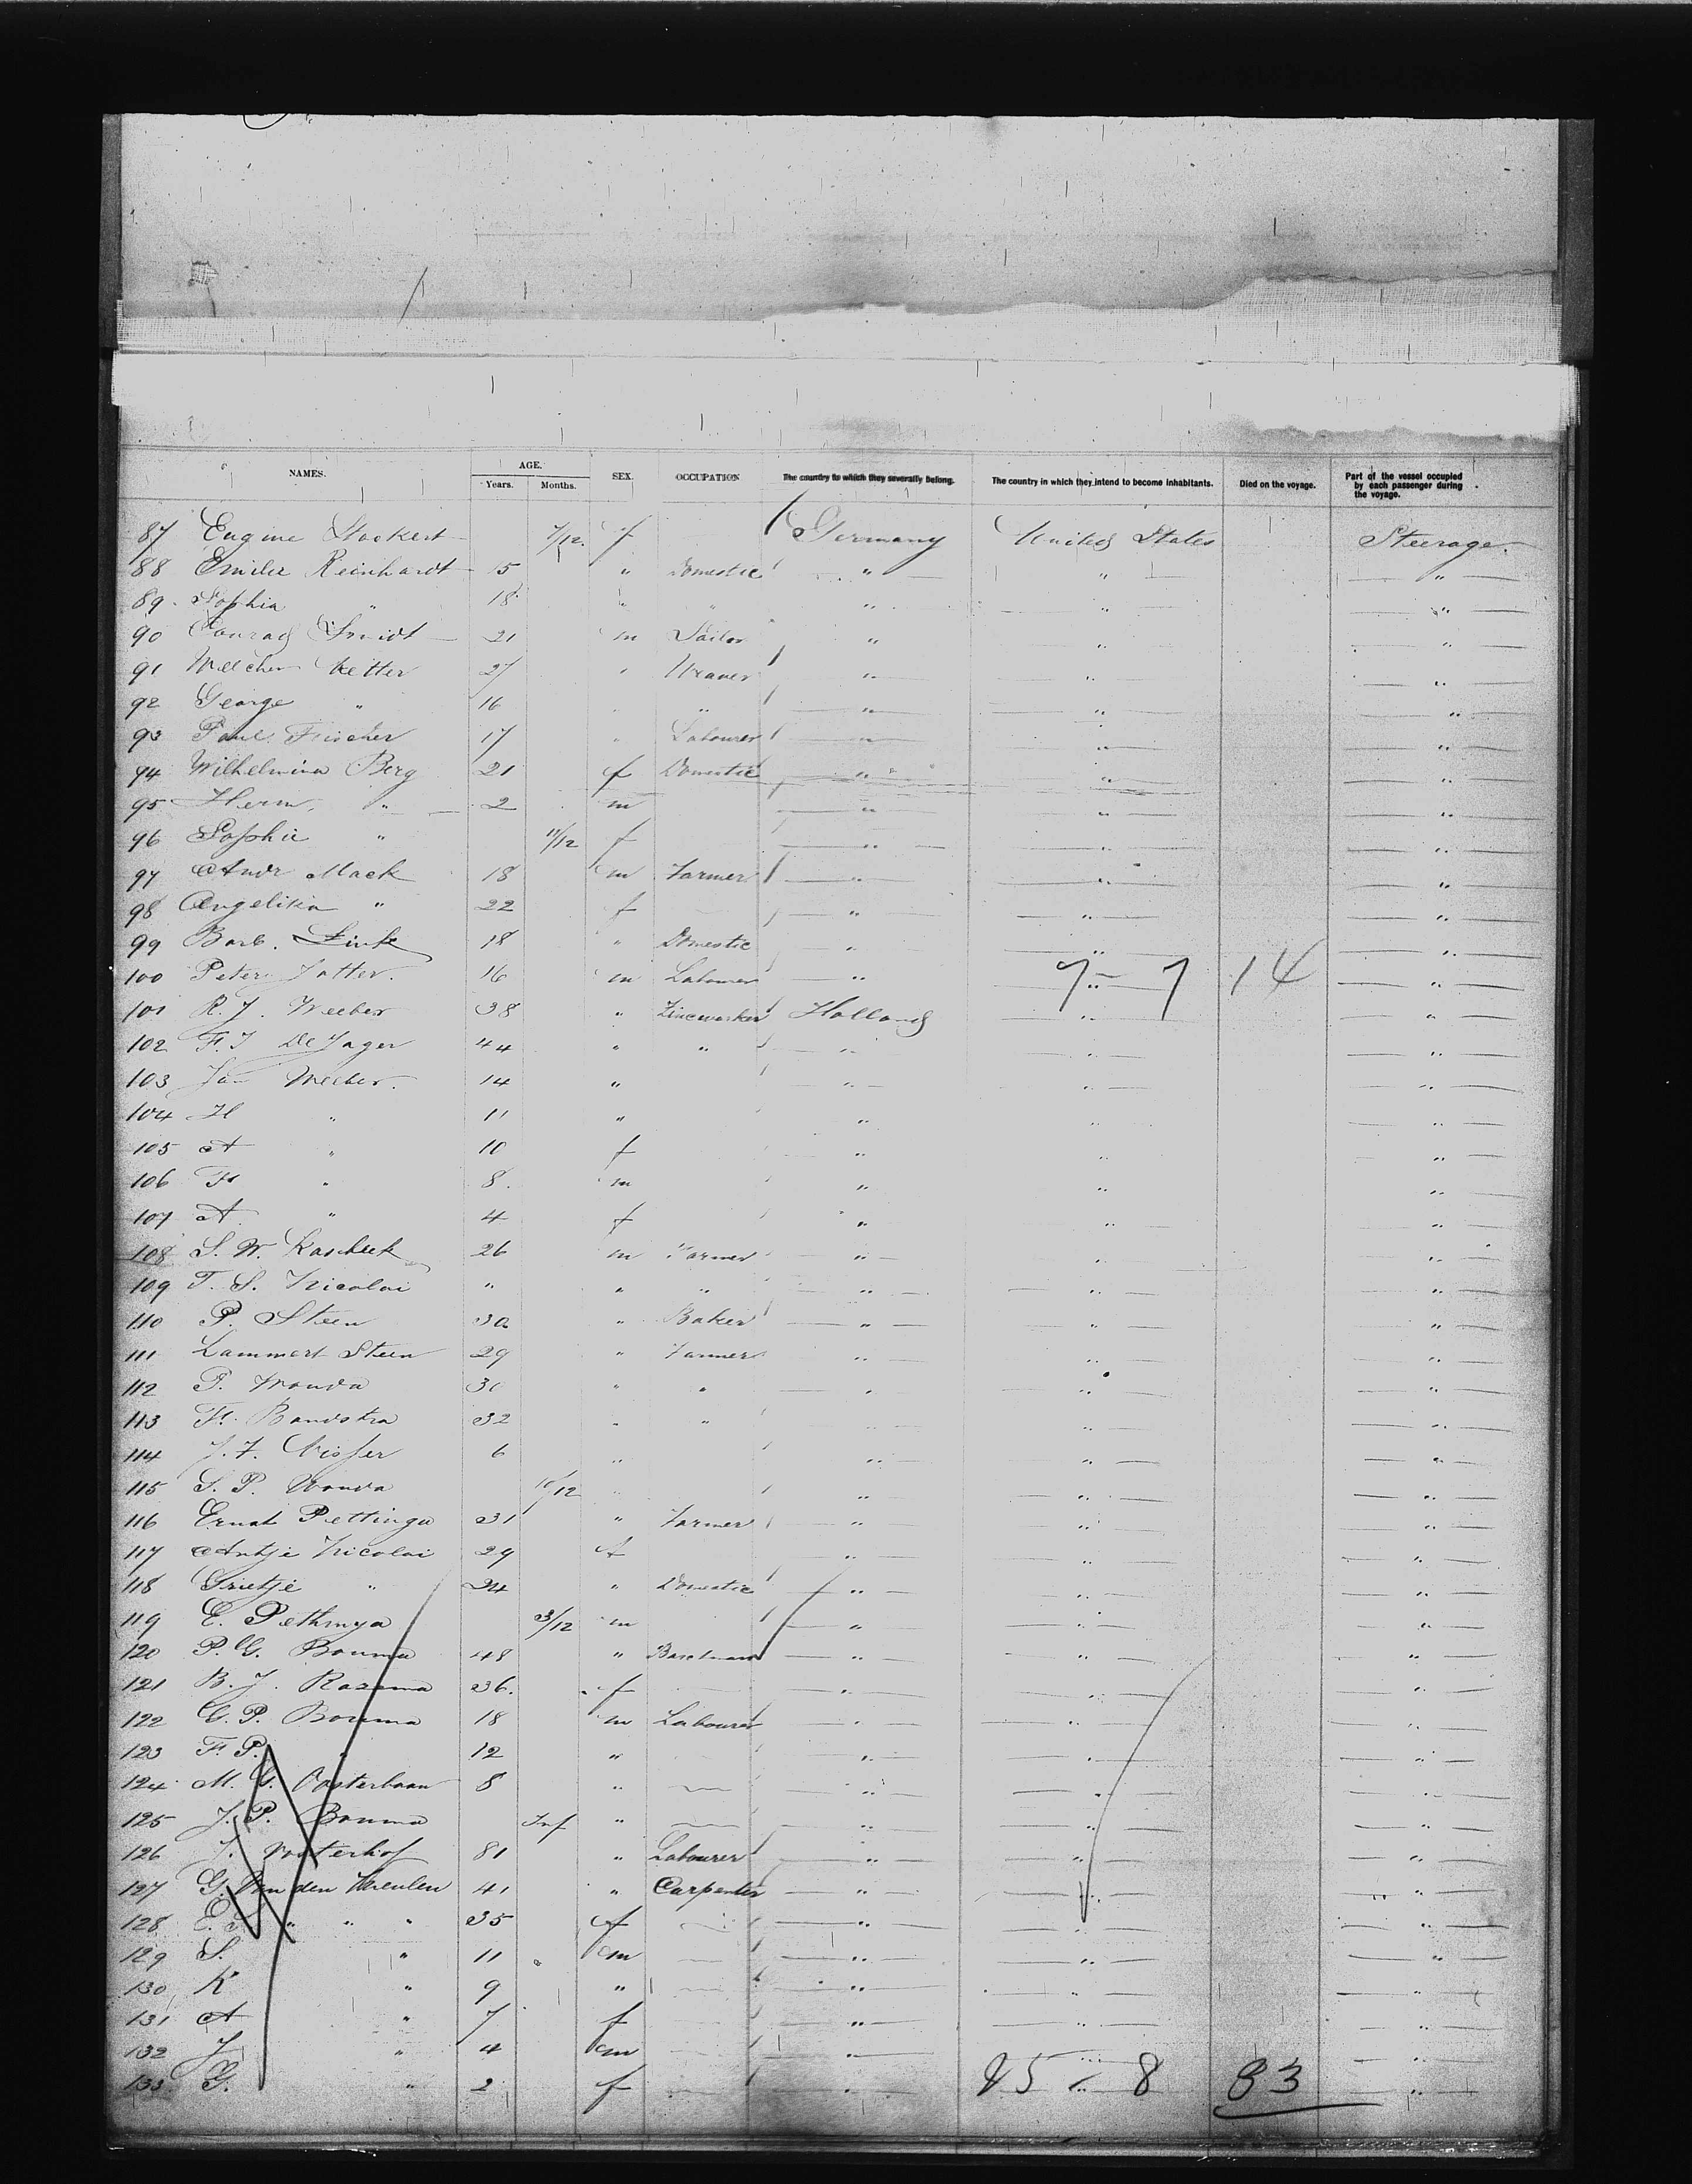 NAMES. AGE. Years. Months. SEX. OCCUPATION The country to which they severally belong. The country in which they intend to become inhabitants. Died on the voyage. Part of the vessel occupied by each passenger during the voyage.
87 Eugine Stockert 7/12. f Germany United States Steerage.
88 Emilie Reinhardt 15 " Domestic " " "
89. Sophia " 18 " " " " "
90 Conrad Smidt 21 m Sailor " " "
91 Ketter 27 " Weaver " " "
92 George " 16 " " " " "
93 Paul Fischer 17 " Labourer " " "
94 Wilhelmina Berg 21 f Domestic " " "
95 Herm. " 2 m " " "
96 Sophie " 11/12 f " " "
97 Andr Mack 18 m Farmer " " "
98 Angelika " 22 f " " "
99 Barb. Link 18 " Domestic " " "
100 Peter 16 m Labourer " " "
7 - 7 14
101 R. J. Weeber 38 " Zincworker Holland " "
102 F. J. De Jager 44 " " " " "
103 Jan Weeber. 14 " " " "
104 H " 11 " " " "
105 A " 10 f " " "
106 F " 8. m " " "
107 A. " 4 f " " "
108 S. W. Kascheek 26 m Farmer " " "
109 T. S. Nicolai " " " " " "
110 P. Steen 30 " Baker " " "
111 Lammert Steen 29 " Farmer " " "
112 P. Wouda 30 " " " " "
113 F. Bandstra 32 " " " " "
114 J. F. Visser 6 " " " "
115 S. P. Wouda 10/12 " " " "
116 Ernst Pettinga 31 " Farmer " " "
117 Antje Nicolai 29 f " " "
118 Grietje " 24 " Domestic " " "
119 E. Pethinga 3/12 m " " "
120 P. G. Bouma 48 " " " "
121 B. J. 36. f " " "
122 G. P. Bouma 18 m Labourer " " "
123 F. P. " 12 " " " "
124 M. G. Oosterbaan 8 " " " "
125 J. P. Bouma Inf " " " "
126 J. Oosterhof 81 " Labourer " " "
127 G. Van den Meulen 41 " Carpenter " " "
128 E. " " " 35 f " " "
129 S. " 11 m " " "
130 K " 9 " " " "
131 A " 7 f " " "
132 J " 4 m " " "
133. G. " 2 f " " "
25 - 8 33